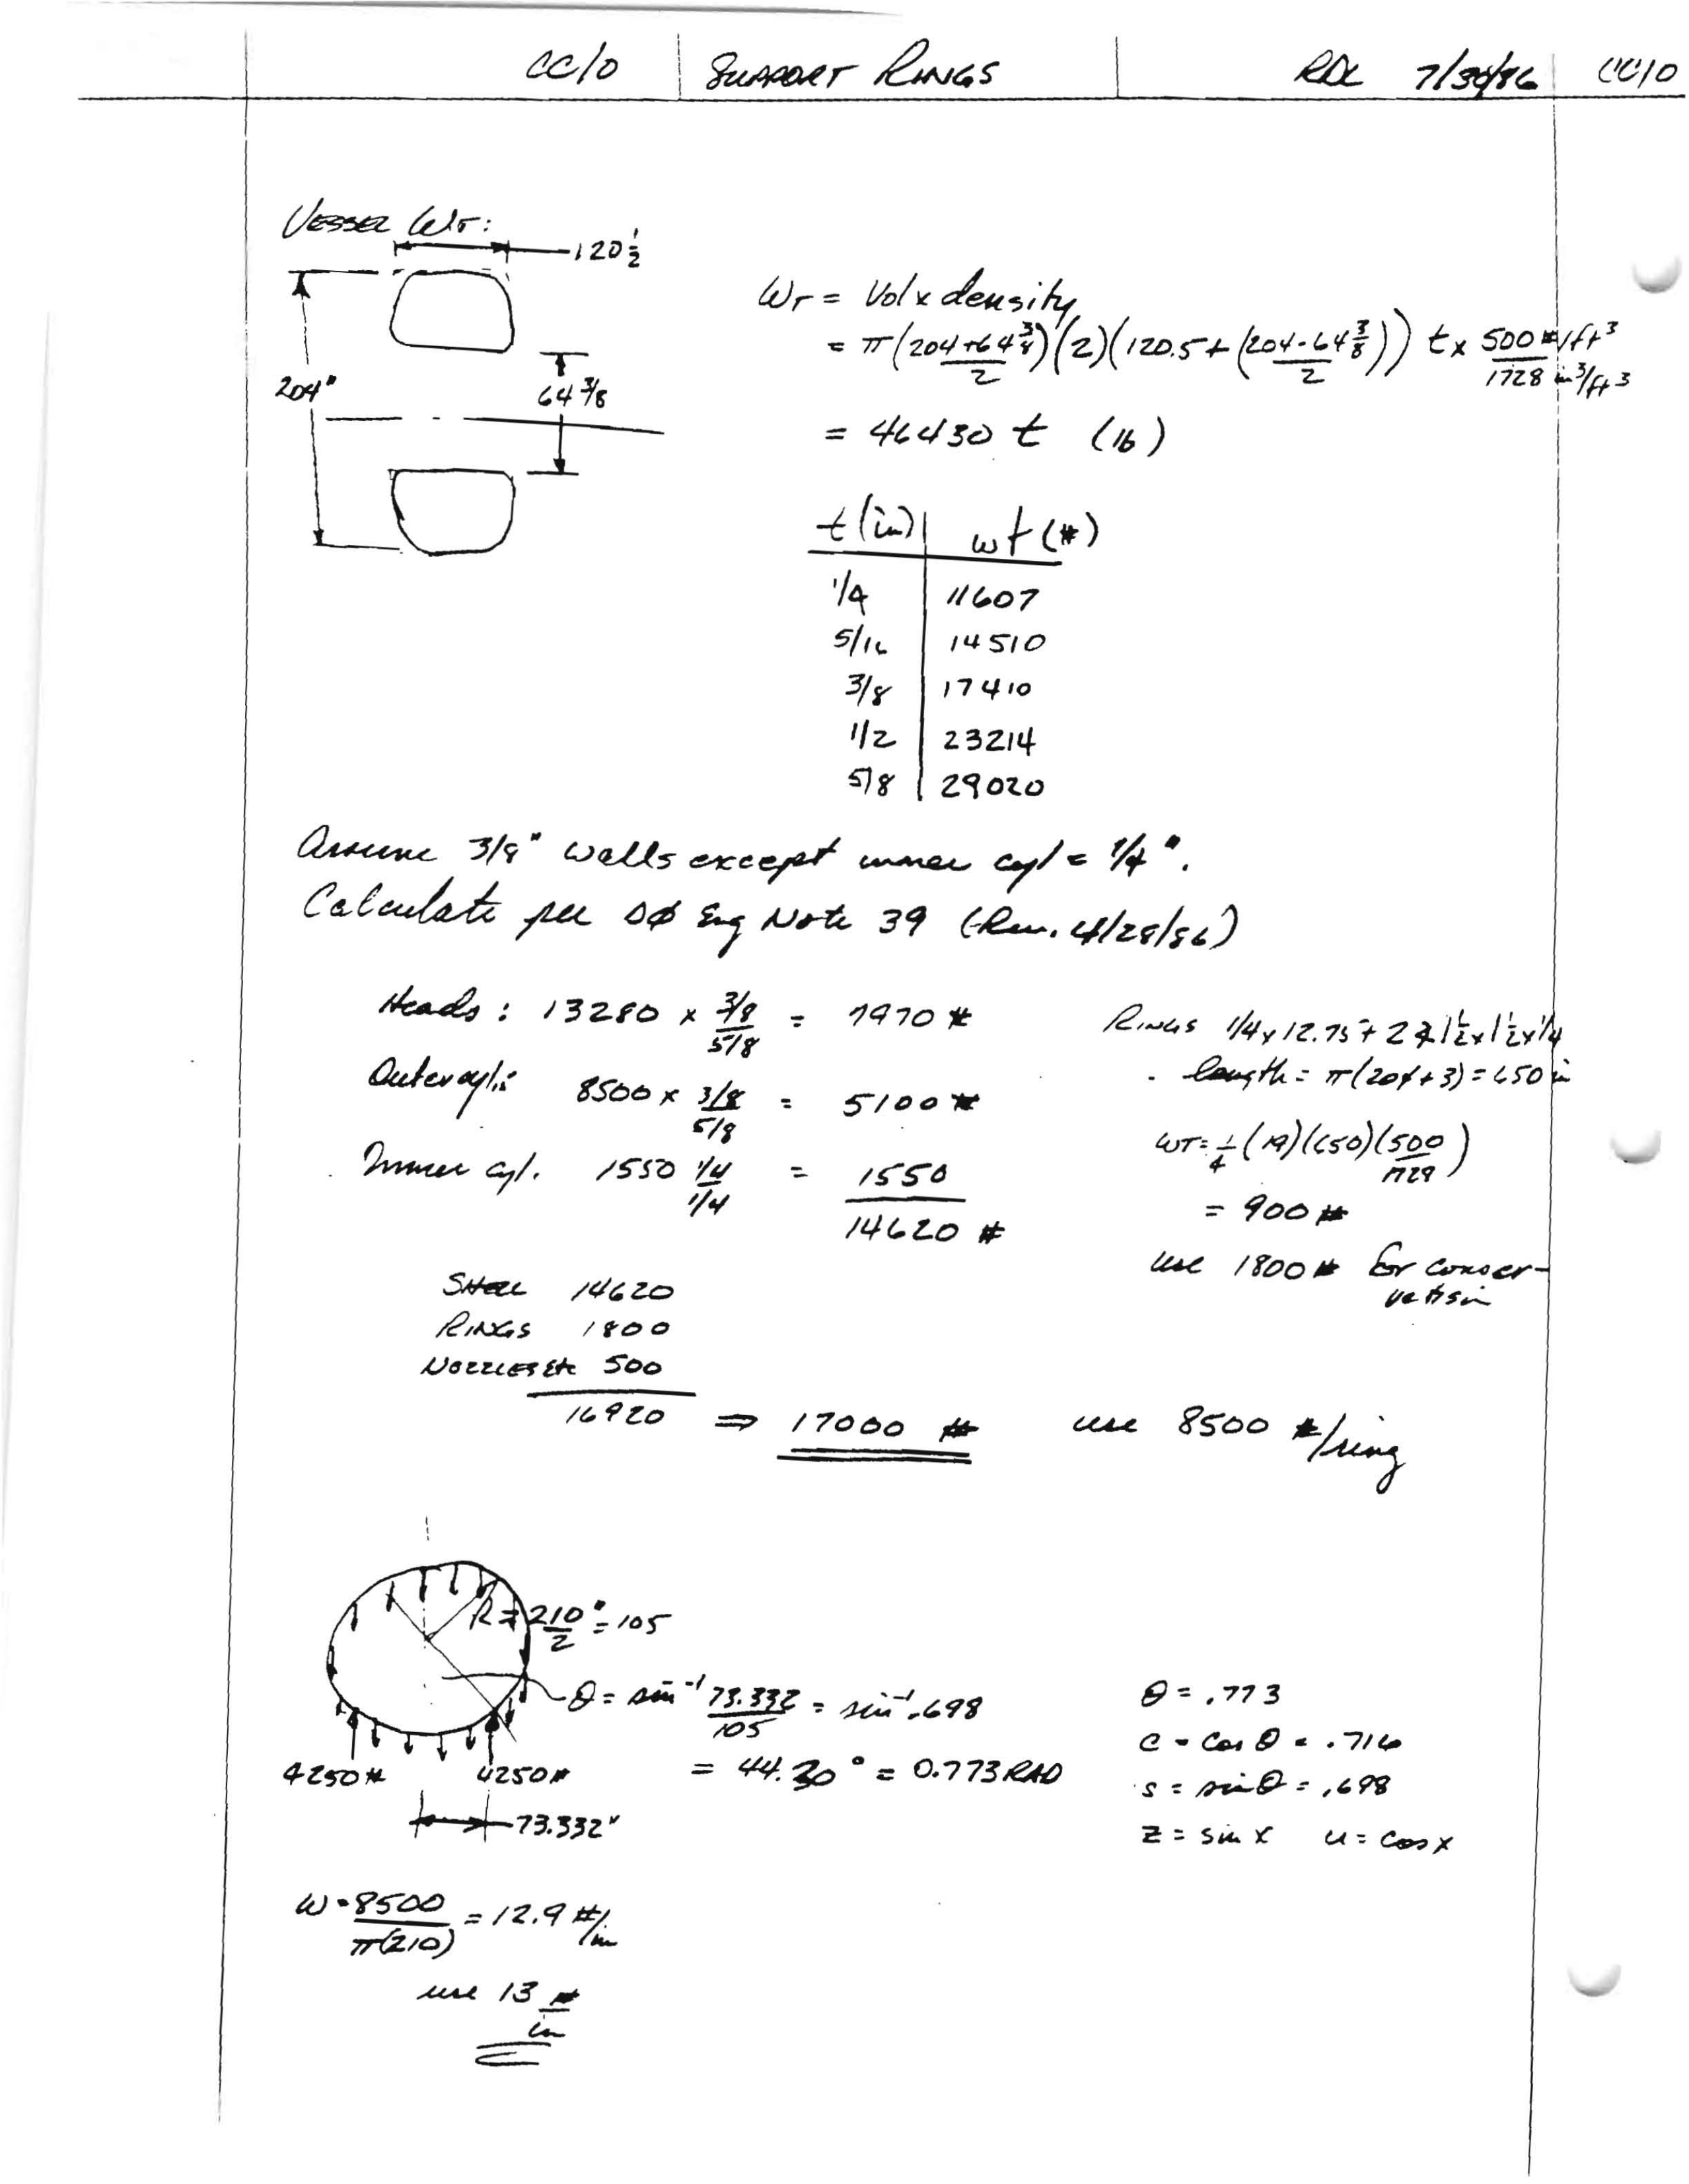 CC10 SUPPORT RINGS RDL 7/30/86 CC10
VESSEL WT:
120 1/2
204"
64 3/8
WT = Vol x density
= π(204+64 3/8 / 2)(2)(120.5 + (204-64 3/8 / 2)) t x 500 #/ft³ / 1728 in³/ft³
= 46430 t (lb)
t (in) wt (#)
1/4 11607
5/16 14510
3/8 17410
1/2 23214
5/8 29020
Assume 3/8" walls except inner cyl = 1/4".
Calculate per DØ Eng Note 39 (Rev. 4/28/86)
Heads: 13280 x 3/8 / 5/8 = 7970 #
Outer cyl: 8500 x 3/8 / 5/8 = 5100 #
Inner cyl. 1550 1/4 / 1/4 = 1550
14620 #
RINGS 1/4 x 12.75 + 2 ∠ 1 1/2 x 1 1/2 x 1/4
length = π(204+3) = 650 in
WT = 1/4 (19)(650)(500/1728)
= 900 #
use 1800 # for conser-
vatism
SHELL 14620
RINGS 1800
NOZZLES etc 500
16920 ⇒ 17000 # use 8500 #/ring
R = 210"/2 = 105
θ = sin⁻¹ 73.332/105 = sin⁻¹ .698
= 44.30° = 0.773 RAD
4250 # 4250 #
73.332"
θ = .773
c = cos θ = .716
s = sin θ = .698
z = sin x u = cos x
w = 8500 / π(210) = 12.9 #/in
use 13 #/in